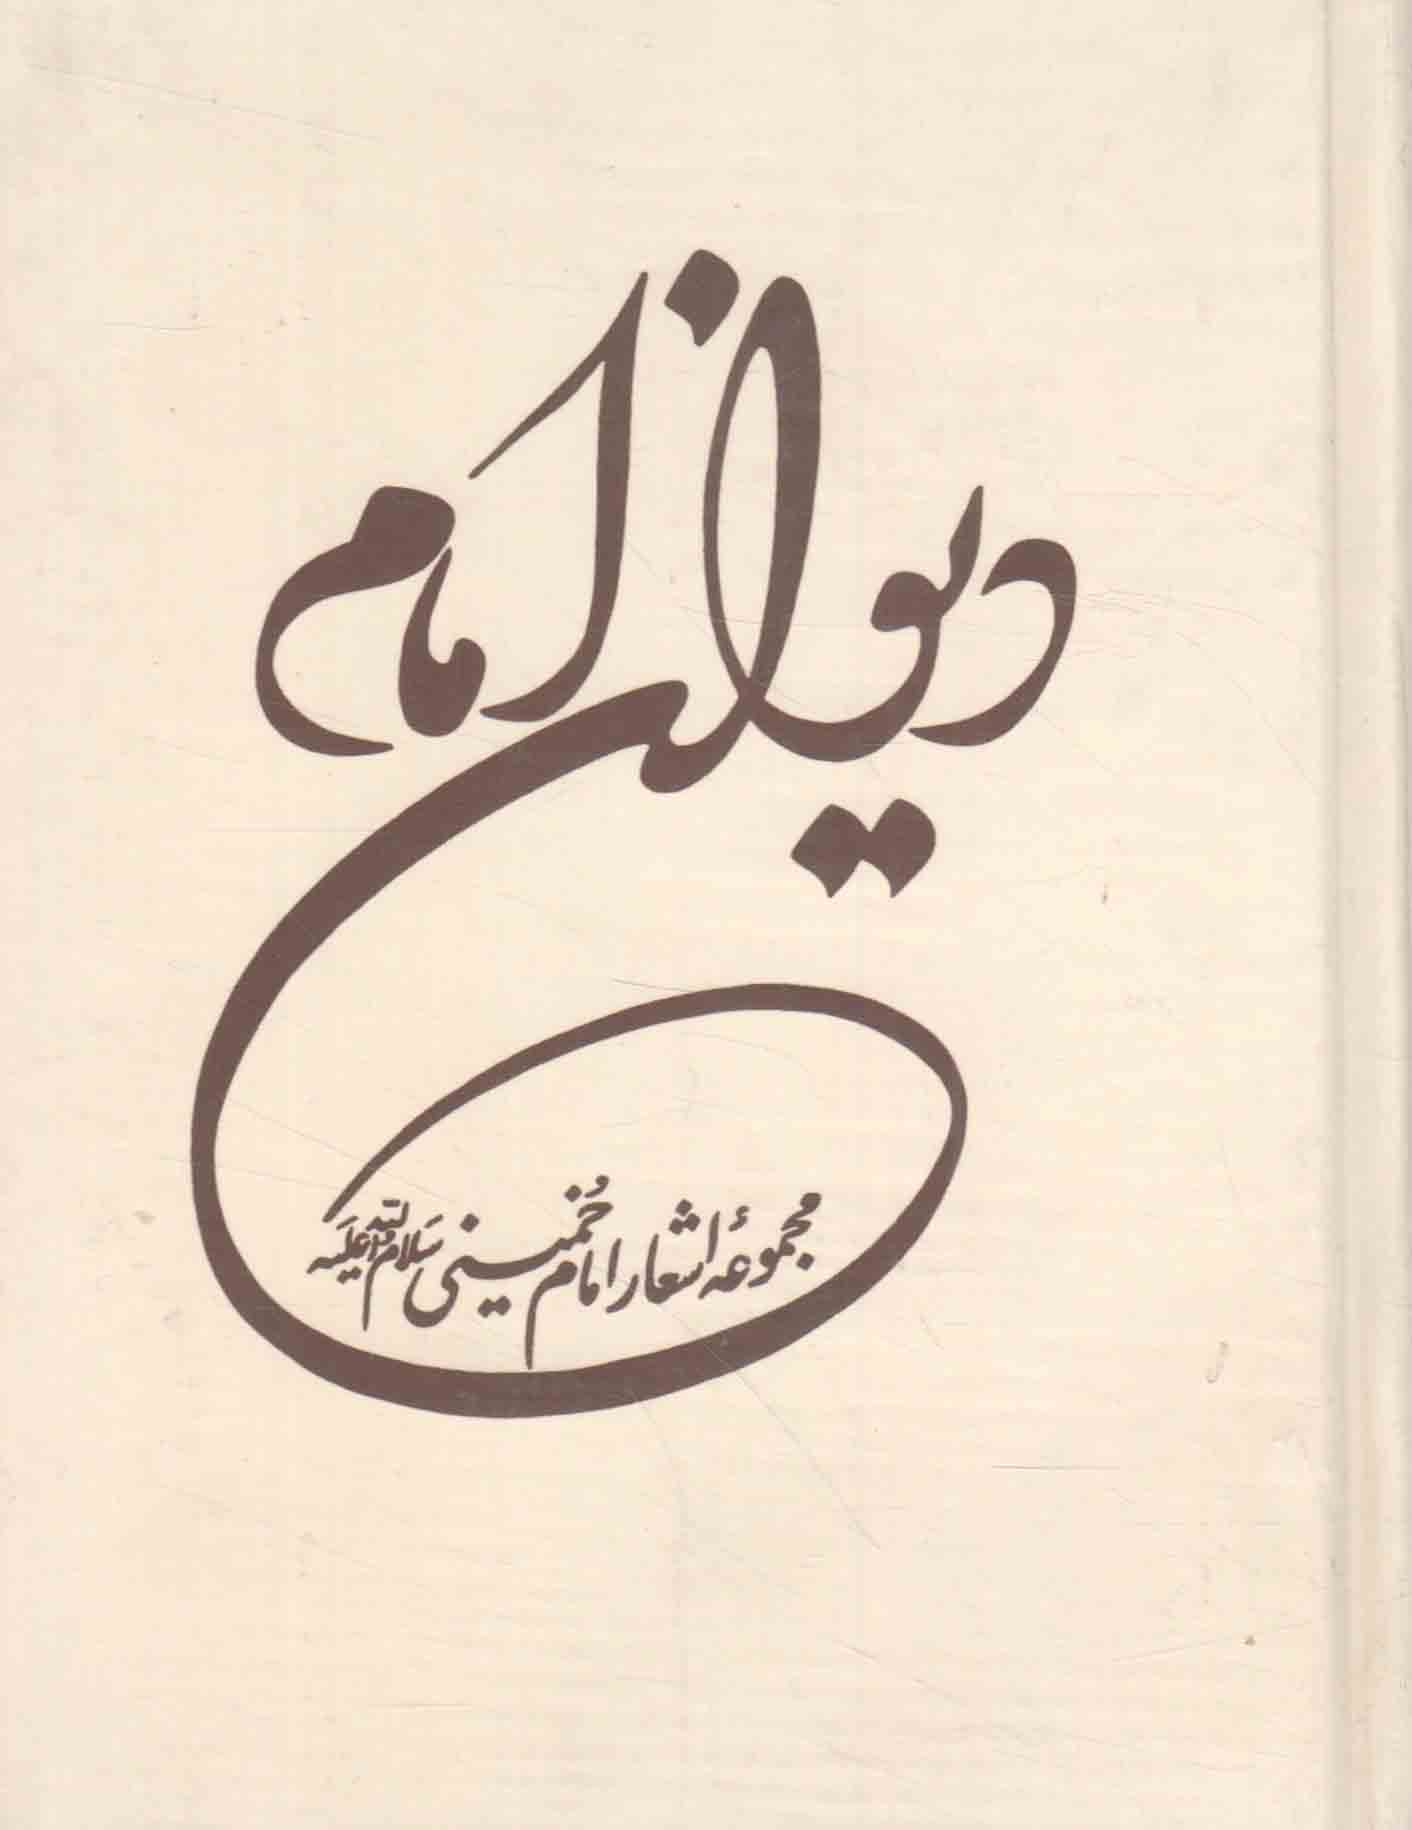 دیوان امام
مجموعهٔ اشعار امام خُمینی سَلام‌الله‌عَلَیه